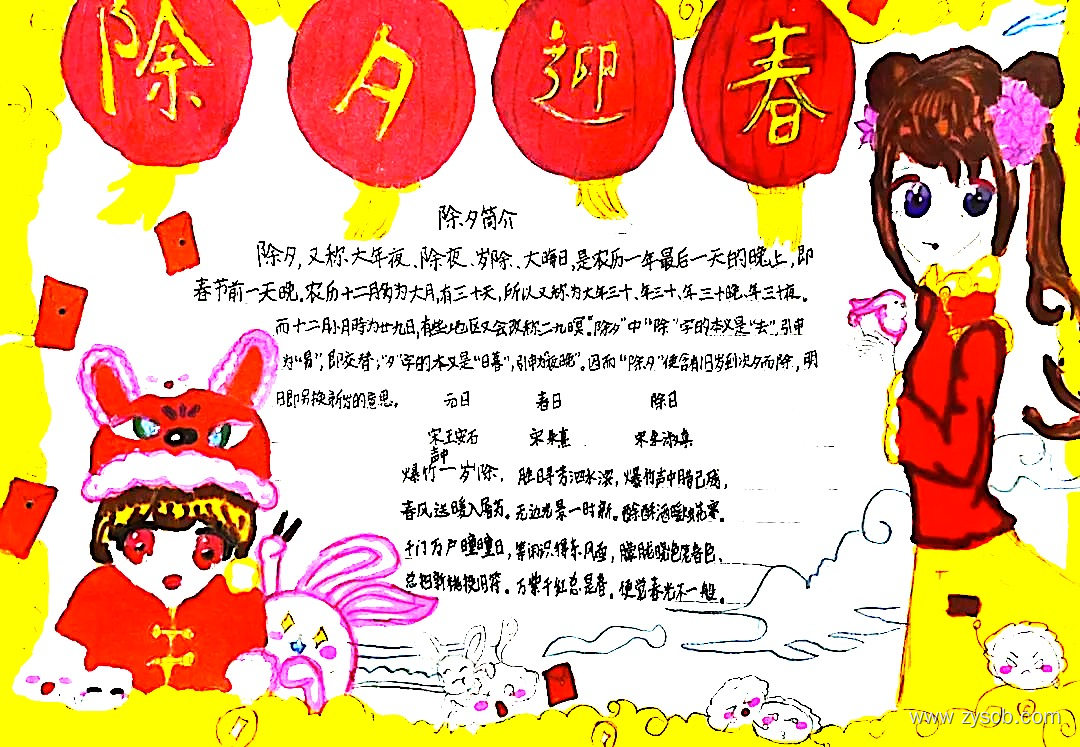 除夕迎春
除夕简介
除夕,又称大年夜、除夜、岁除、大晦日,是农历一年最后一天的晚上,即
春节前一天晚。农历十二月多为大月,有三十天,所以又称为大年三十、年三十、年三十晚、年三十夜。
而十二月小月时为廿九日,有些地区又会改称二九暝。"除夕"中"除"字的本义是"去",引申
为"易",即交替;"夕"字的本义是"日暮",引申为"夜晚"。因而"除夕"便含有旧岁到次夕而除,明
日即另换新岁的意思。 元日 春日 除日
宋王安石 宋朱熹 宋
爆竹声中一岁除, 胜日寻芳泗水滨, 爆竹声中腊已残,
春风送暖入屠苏。 无边光景一时新。 酴酥酒暖烛花寒。
千门万户曈曈日, 等闲识得东风面, 朦胧晓色笼春色,
总把新桃换旧符。 万紫千红总是春。 便觉春光不一般。
www.zysdb.com